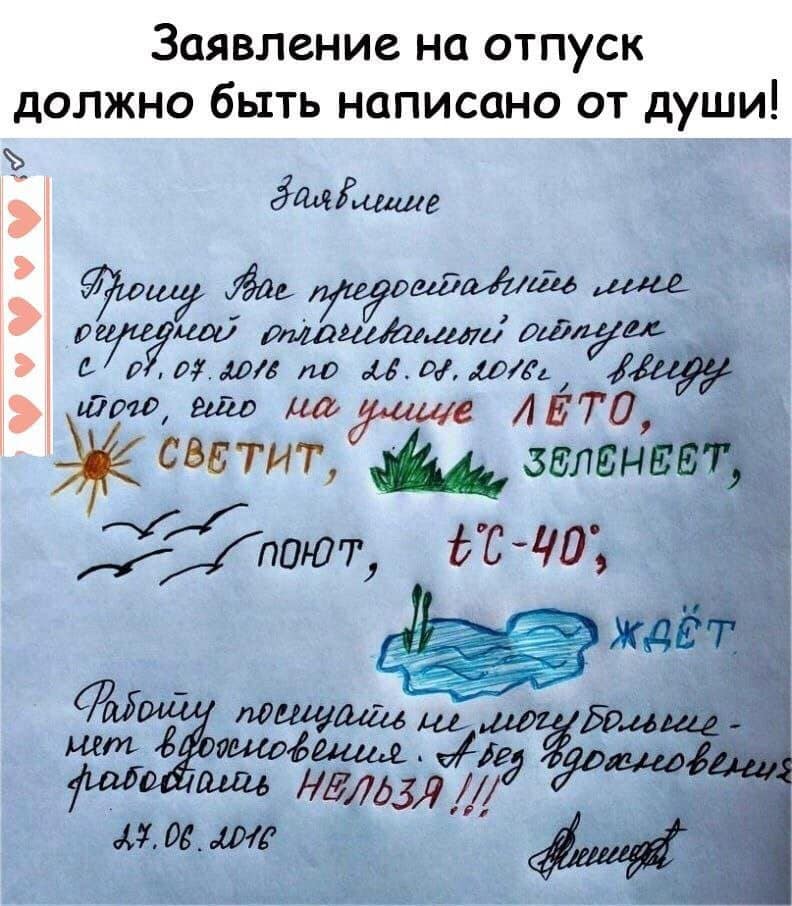 Заявление на отпуск
должно быть написано от души!
Заявление
Прошу Вас предоставить мне
очередной оплачиваемый отпуск
с 01.07.2016 по 26.08.2016г, ввиду
того, что на улице ЛЕТО,
СВЕТИТ, ЗЕЛЕНЕЕТ,
ПОЮТ, t°C-40°,
ЖДЁТ
Работу посещать не могу больше -
нет вдохновения. А без вдохновения
работать НЕЛЬЗЯ!!!
27.06.2016